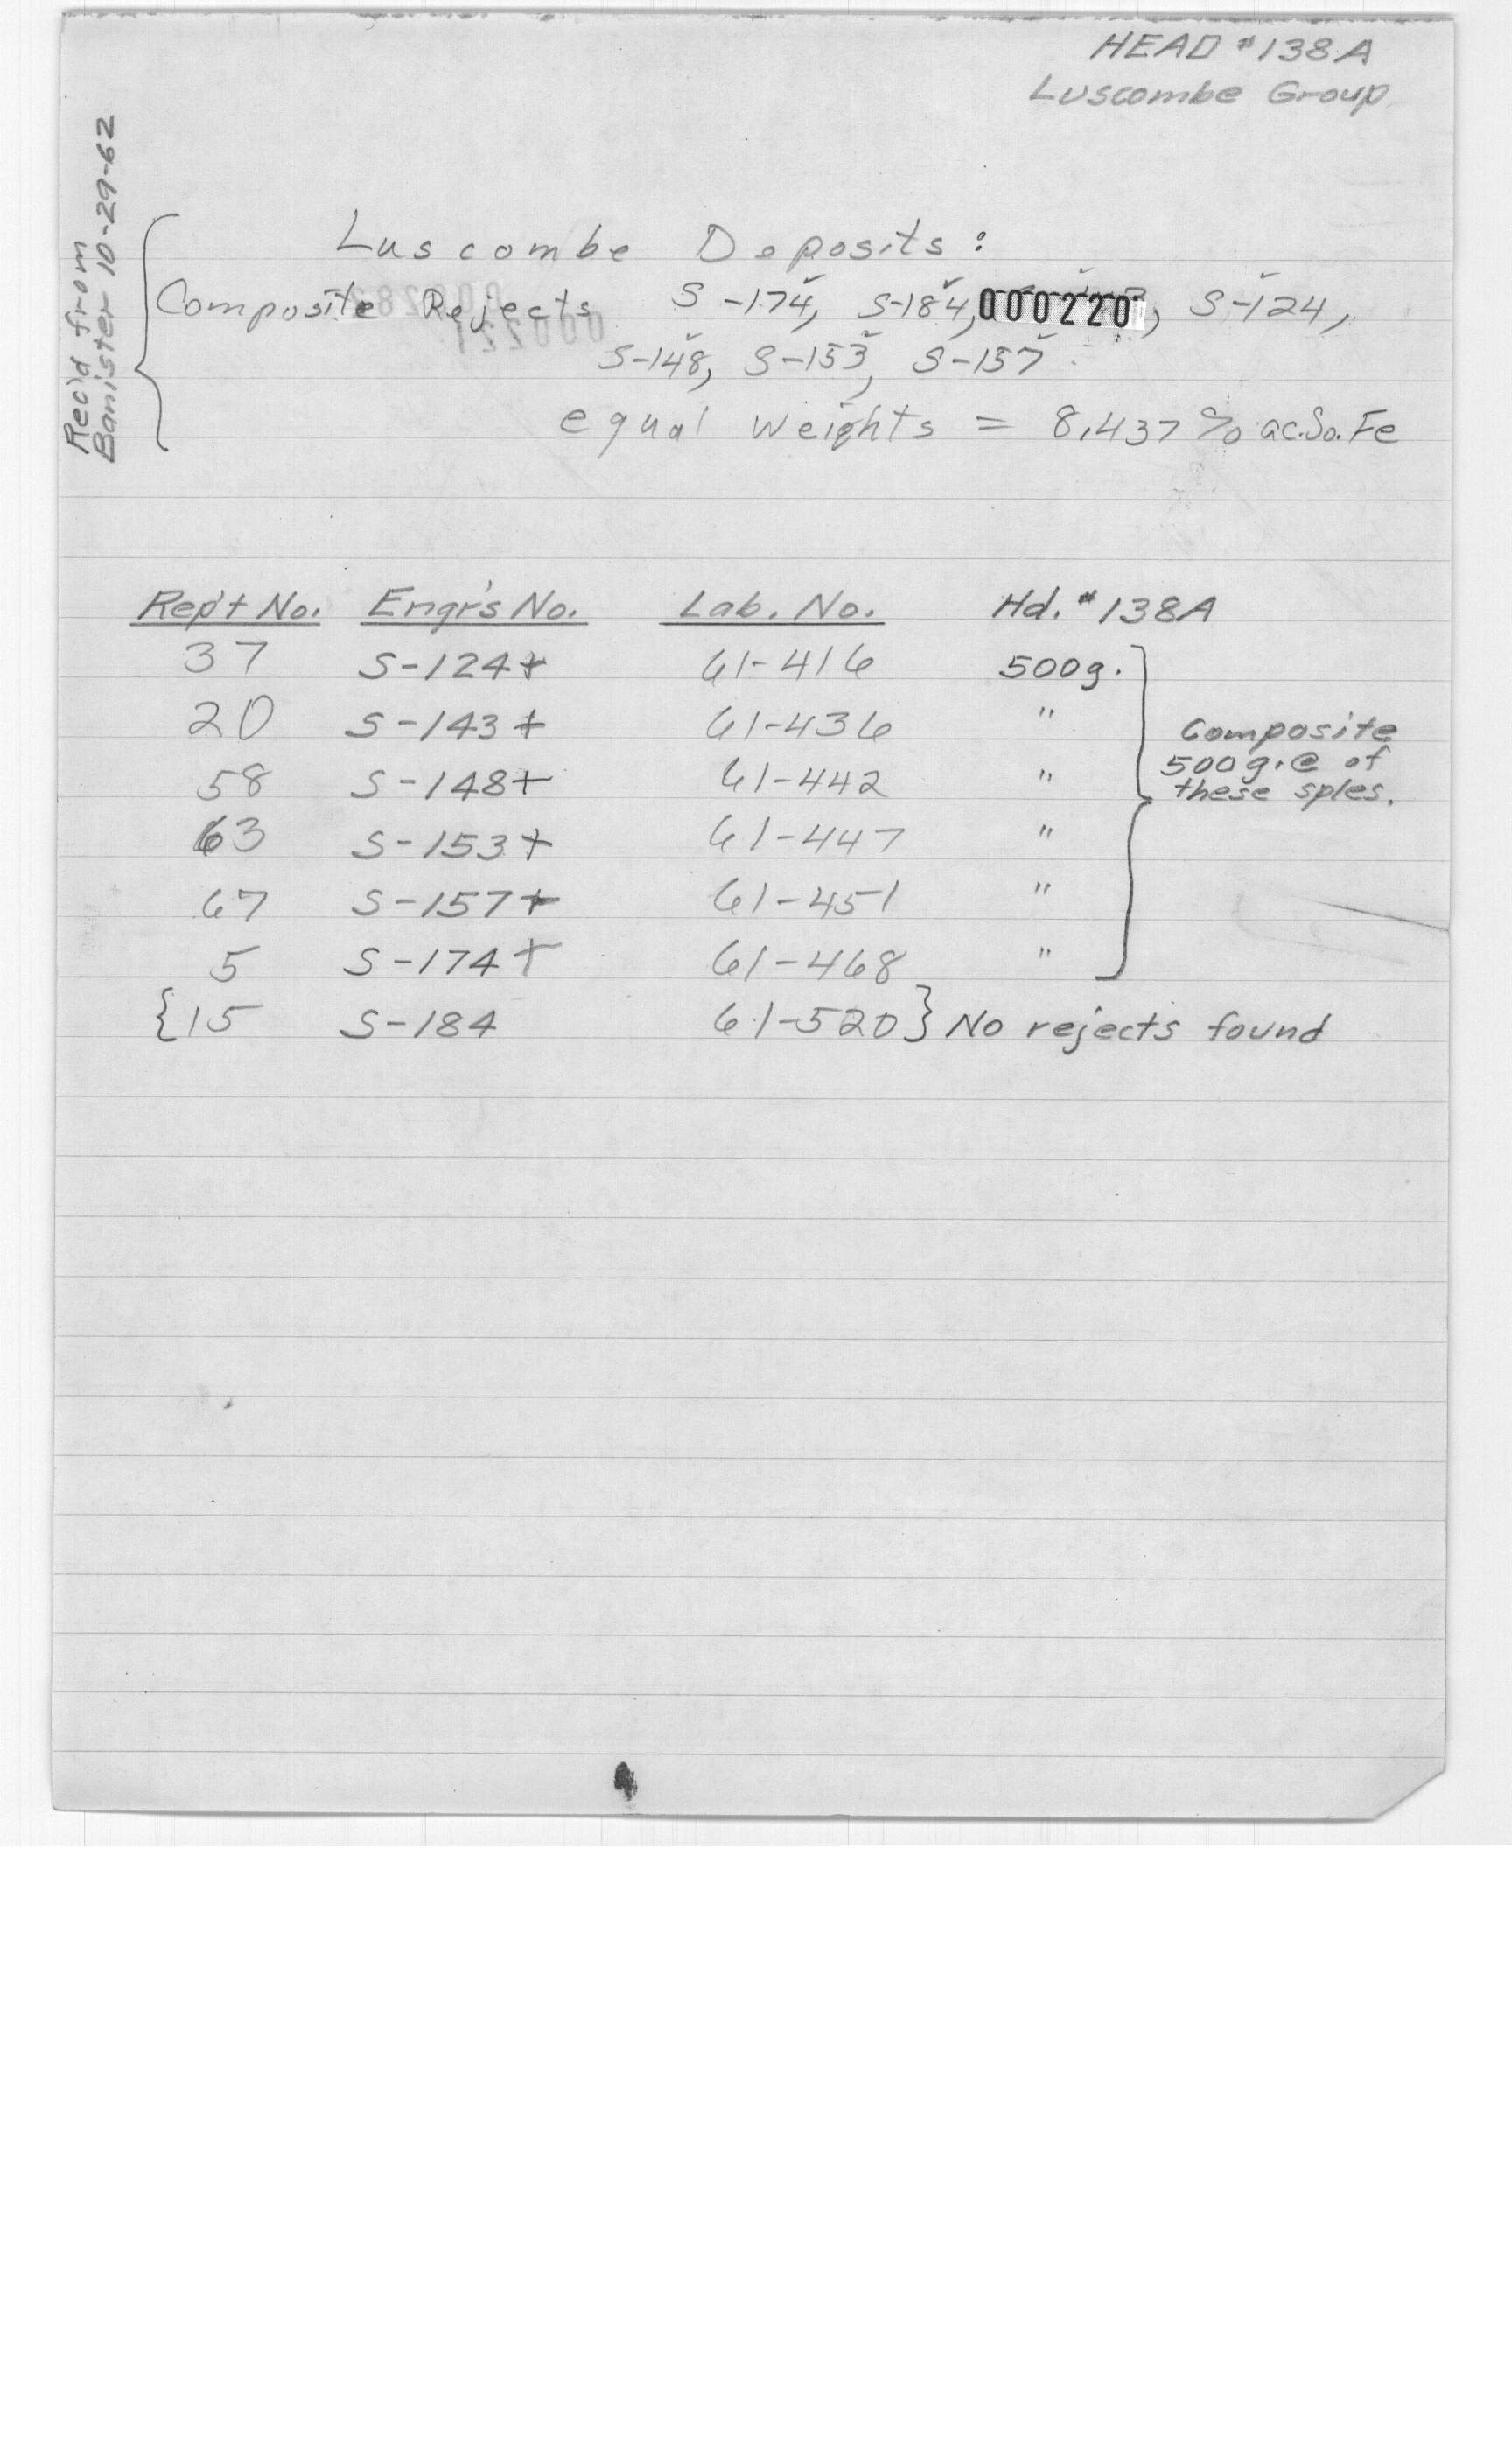 HEAD #138A
Luscombe Group
Rec'd from
Banister 10-29-62
Luscombe Deposits:
Composite Rejects S-174, S-184, 000220, S-124,
S-148, S-153, S-157
equal weights = 8.437% ac.So.Fe
Rep't No. Engr's No. Lab. No. Hd. #138A
37 S-124+ 61-416 500g.
20 S-143+ 61-436 "
Composite
500g.@ of
these sples.
58 S-148+ 61-442 "
63 S-153+ 61-447 "
67 S-157+ 61-451 "
5 S-174+ 61-468 "
{15 S-184 61-520} No rejects found